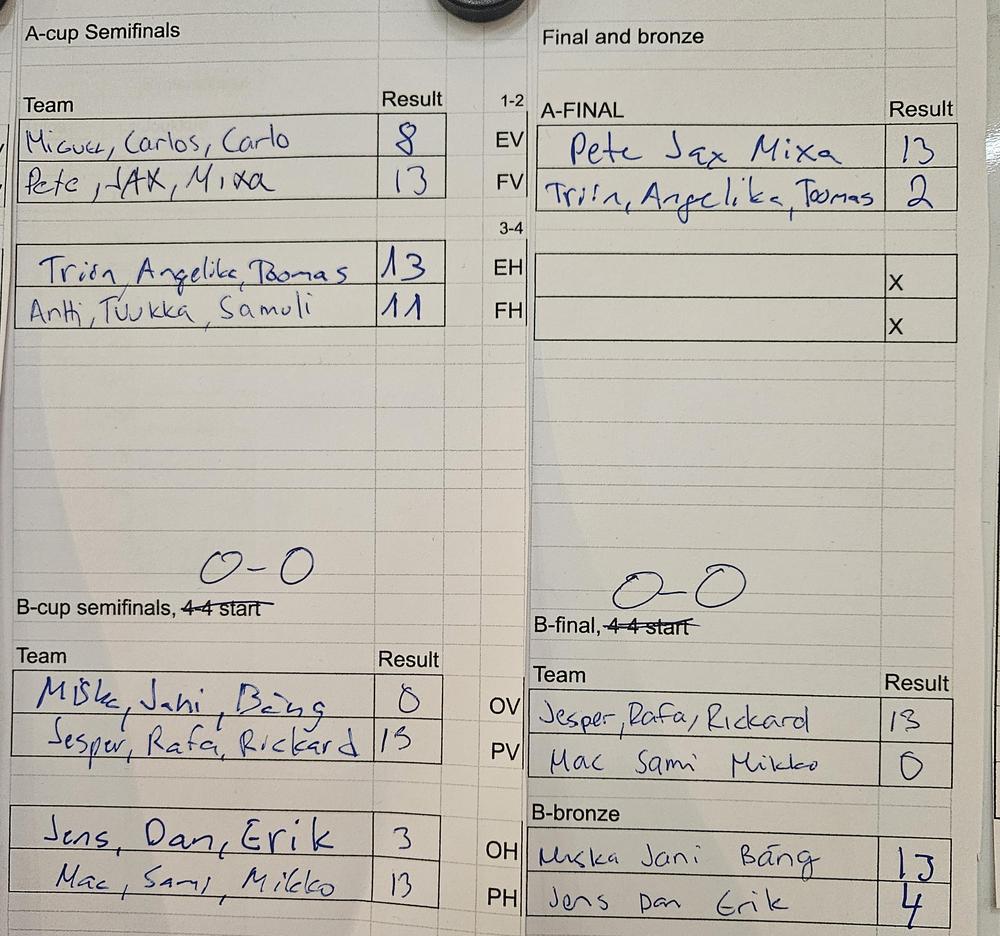 A-cup Semifinals
Team Result
Miguel, Carlos, Carlo 8
Pete, JAX, Mixa 13
Triin, Angelika, Toomas 13
Antti, Tuukka, Samuli 11
0-0
B-cup semifinals, 4-4 start
Team Result
Miska, Jani, Bäng 0
Jesper, Rafa, Rickard 13
Jens, Dan, Erik 3
Mac, Sami, Mikko 13
Final and bronze
1-2 A-FINAL Result
EV Pete Jax Mixa 13
FV Triin, Angelika, Toomas 2
3-4
EH X
FH X
0-0
B-final, 4-4 start
Team Result
OV Jesper, Rafa, Rickard 13
PV Mac Sami Mikko 0
B-bronze
OH Miska Jani Bäng 13
PH Jens Dan Erik 4